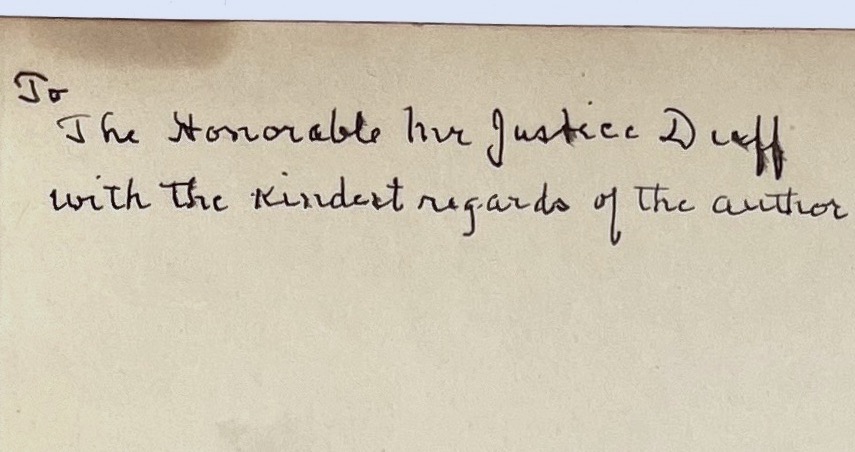 To
The Honorable Mr Justice Duff
with the kindest regards of the author